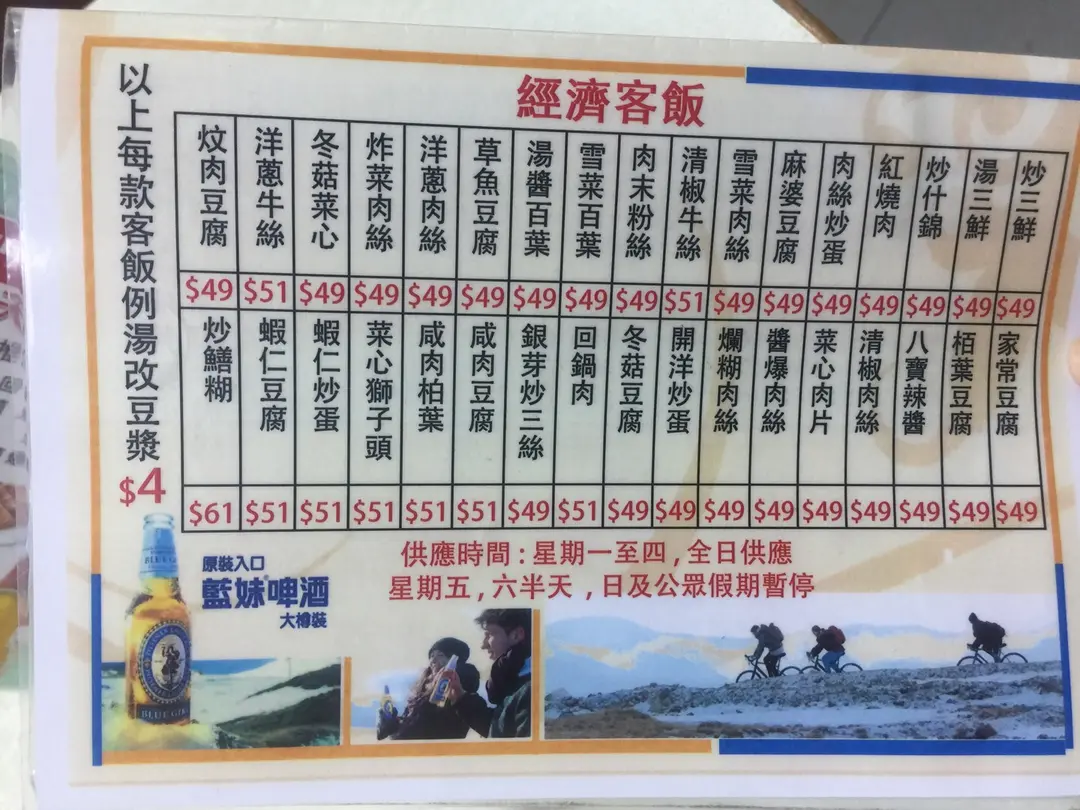 經濟客飯
炒三鮮
$49
湯三鮮
$49
炒什錦
$49
紅燒肉
$49
肉絲炒蛋
$49
麻婆豆腐
$49
雪菜肉絲
$49
清椒牛絲
$51
肉末粉絲
$49
雪菜百葉
$49
湯醬百葉
$49
草魚豆腐
$49
洋蔥肉絲
$49
炸菜肉絲
$49
冬菇菜心
$49
洋蔥牛絲
$51
炆肉豆腐
$49
家常豆腐
$49
栢葉豆腐
$49
八寶辣醬
$49
清椒肉絲
$49
菜心肉片
$49
醬爆肉絲
$49
爛糊肉絲
$49
開洋炒蛋
$49
冬菇豆腐
$49
回鍋肉
$51
銀芽炒三絲
$49
咸肉豆腐
$51
咸肉柏葉
$51
菜心獅子頭
$51
蝦仁炒蛋
$51
蝦仁豆腐
$51
炒鱔糊
$61
以上每款客飯例湯改豆漿
$4
供應時間:星期一至四,全日供應
星期五,六半天,日及公眾假期暫停
原裝入口
藍妹啤酒
大樽裝
BLUE GIRL